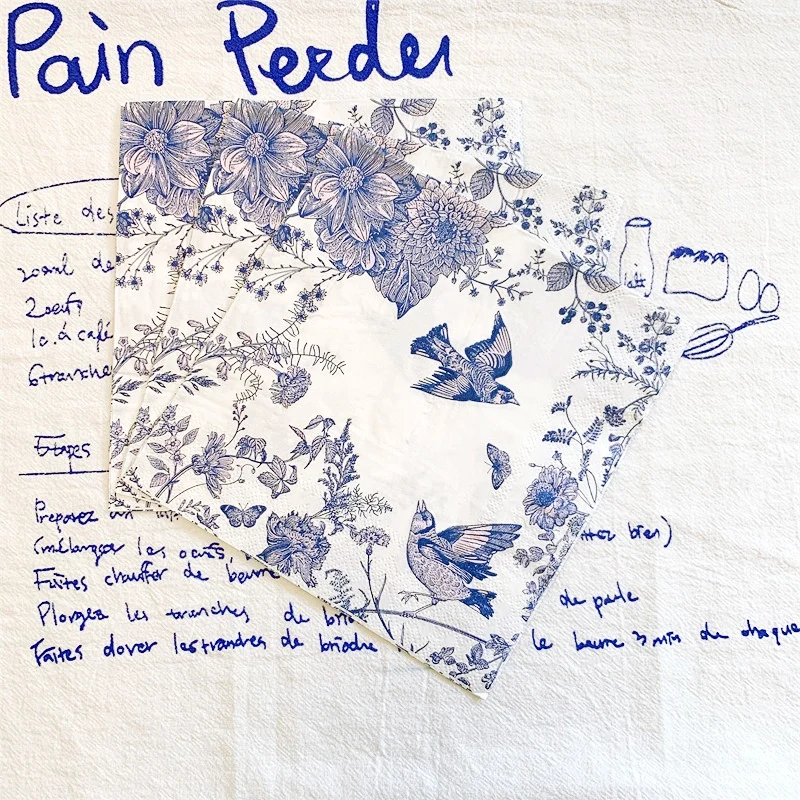 Pain Perdu
Liste des
200ml de
2 oeufs
1c. à café
6 tranche
Etapes
Préparez un
(mélanger les oeufs, ttez bien)
Faites chauffer de beurre
Plongez les tranches de brio de
Faites dorer les tranches de brioche le beurre 3 min de chaque
lait